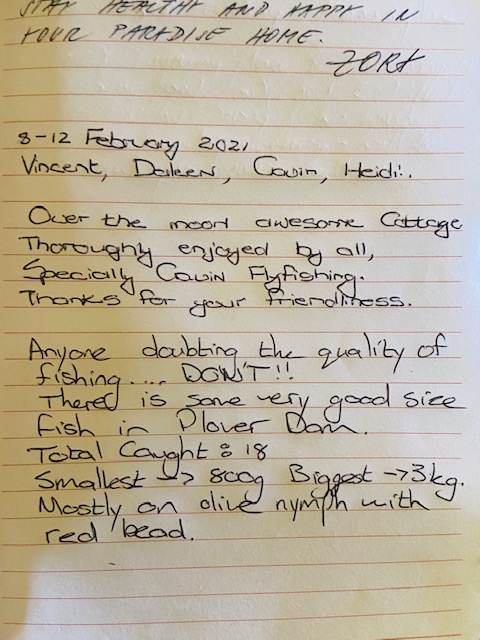 STAY HEALTHY AND HAPPY IN
YOUR PARADISE HOME.
ZORA
8-12 February 2021
Vincent, Daleen, Gavin, Heidi.
Over the moon awesome Cottage
Thoroughly enjoyed by all,
Specially Gavin Flyfishing.
Thanks for your friendliness.
Anyone doubting the quality of
fishing.... DON'T!!
There is some very good size
fish in Plover Dam.
Total Caught : 18
Smallest -> 800g Biggest -> 3kg.
Mostly on olive nymph with
red bead.